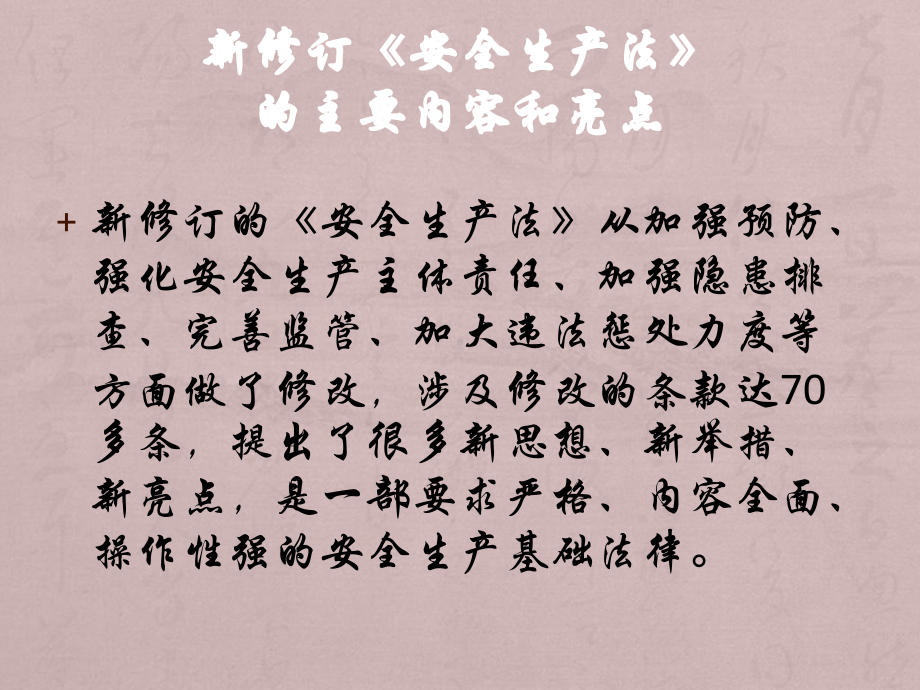 新修订《安全生产法》
的主要内容和亮点
+ 新修订的《安全生产法》从加强预防、
强化安全生产主体责任、加强隐患排
查、完善监管、加大违法惩处力度等
方面做了修改，涉及修改的条款达70
多条，提出了很多新思想、新举措、
新亮点，是一部要求严格、内容全面、
操作性强的安全生产基础法律。